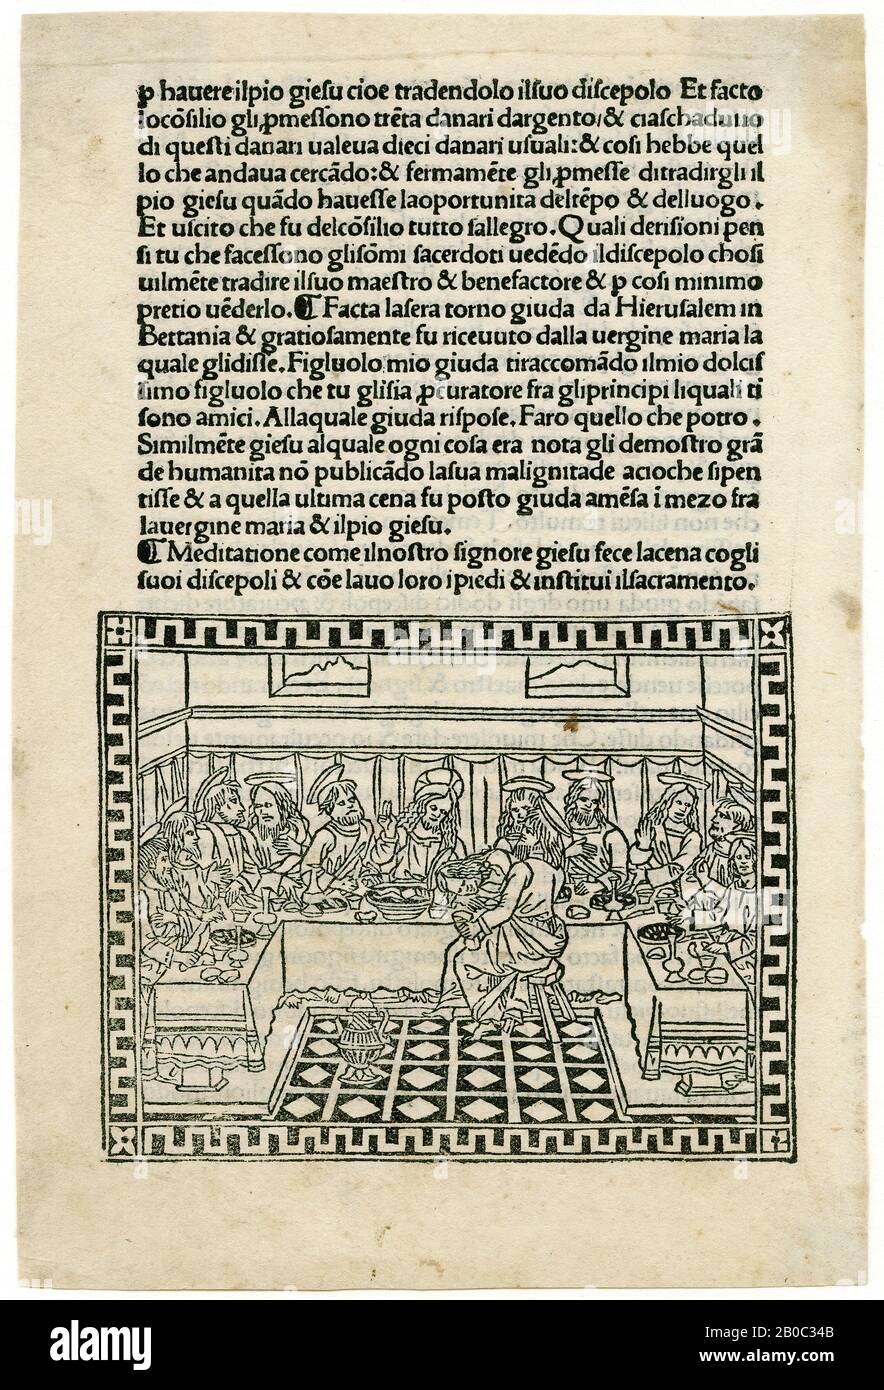 ꝑ hauere ilpio giesu cioe tradendolo ilsuo discepolo Et facto
locōsilio gli ꝓmessono trēta danari dargento/& ciaschaduno
di questi danari ualeua dieci danari usuali:& cosi hebbe quel
lo che andaua cercādo:& fermamēte gli ꝓmesse ditradirgli il
pio giesu quādo hauesse laoportunita deltēpo & delluogo.
Et uscito che fu delcōsilio tutto sallegro. Quali derisioni pen
si tu che facessono glisōmi sacerdoti uedēdo ildiscepolo chosi
uilmēte tradire ilsuo maestro & benefactore & ꝑ cosi minimo
pretio uēderlo. ¶ Facta lasera torno giuda da Hierusalem in
Bettania & gratiosamente fu riceuuto dalla uergine maria la
quale glidisse. Figluolo mio giuda tiraccomādo ilmio dolcis
simo figluolo che tu glisia ꝓcuratore fra gliprincipi liquali ti
sono amici. Allaquale giuda rispose. Faro quello che potro.
Similmēte giesu alquale ogni cosa era nota gli demostro grā
de humanita nō publicādo lasua malignitade acioche sipen
tisse & a quella ultima cena fu posto giuda amēsa ī mezo fra
lauergine maria & ilpio giesu.
¶ Meditatione come ilnostro signore giesu fece lacena cogli
suoi discepoli & cōe lauo loro i piedi & institui ilsacramento.
alamy
Image ID: 2B0C34B
www.alamy.com